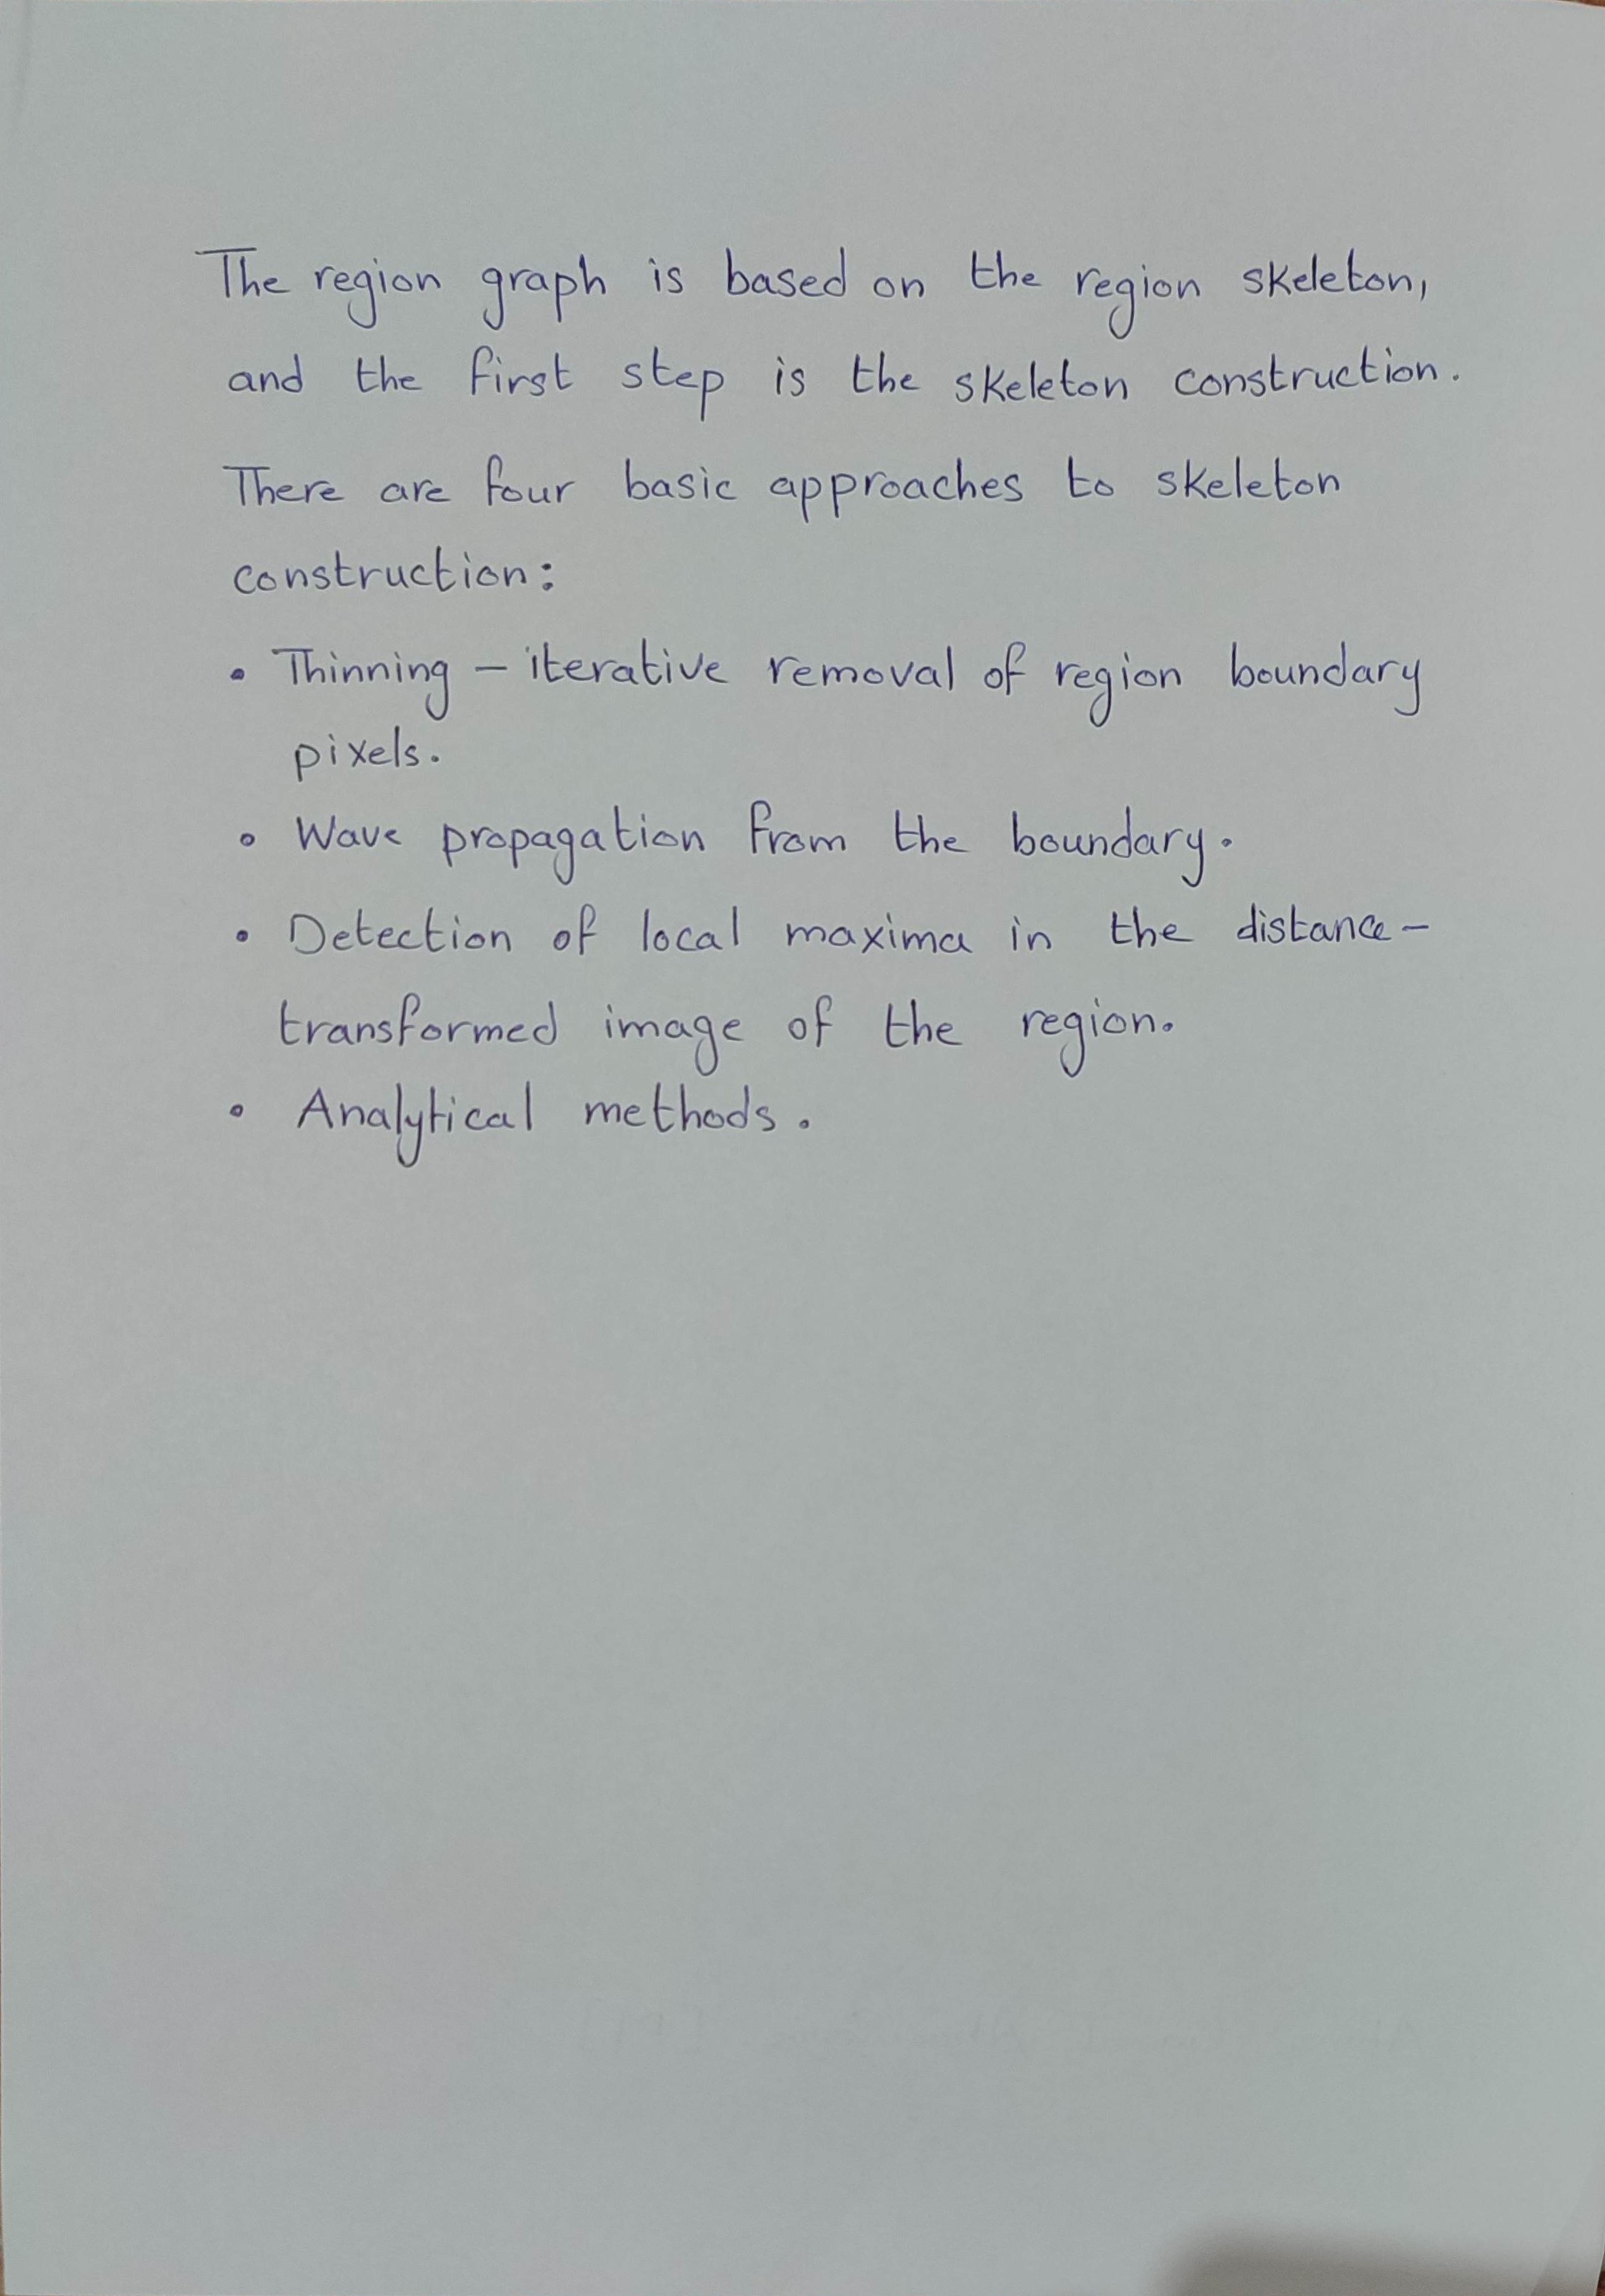 The region graph is based on the region skeleton,
and the first step is the skeleton construction.
There are four basic approaches to skeleton
construction:
• Thinning – iterative removal of region boundary
pixels.
• Wave propagation from the boundary.
• Detection of local maxima in the distance-
transformed image of the region.
• Analytical methods.